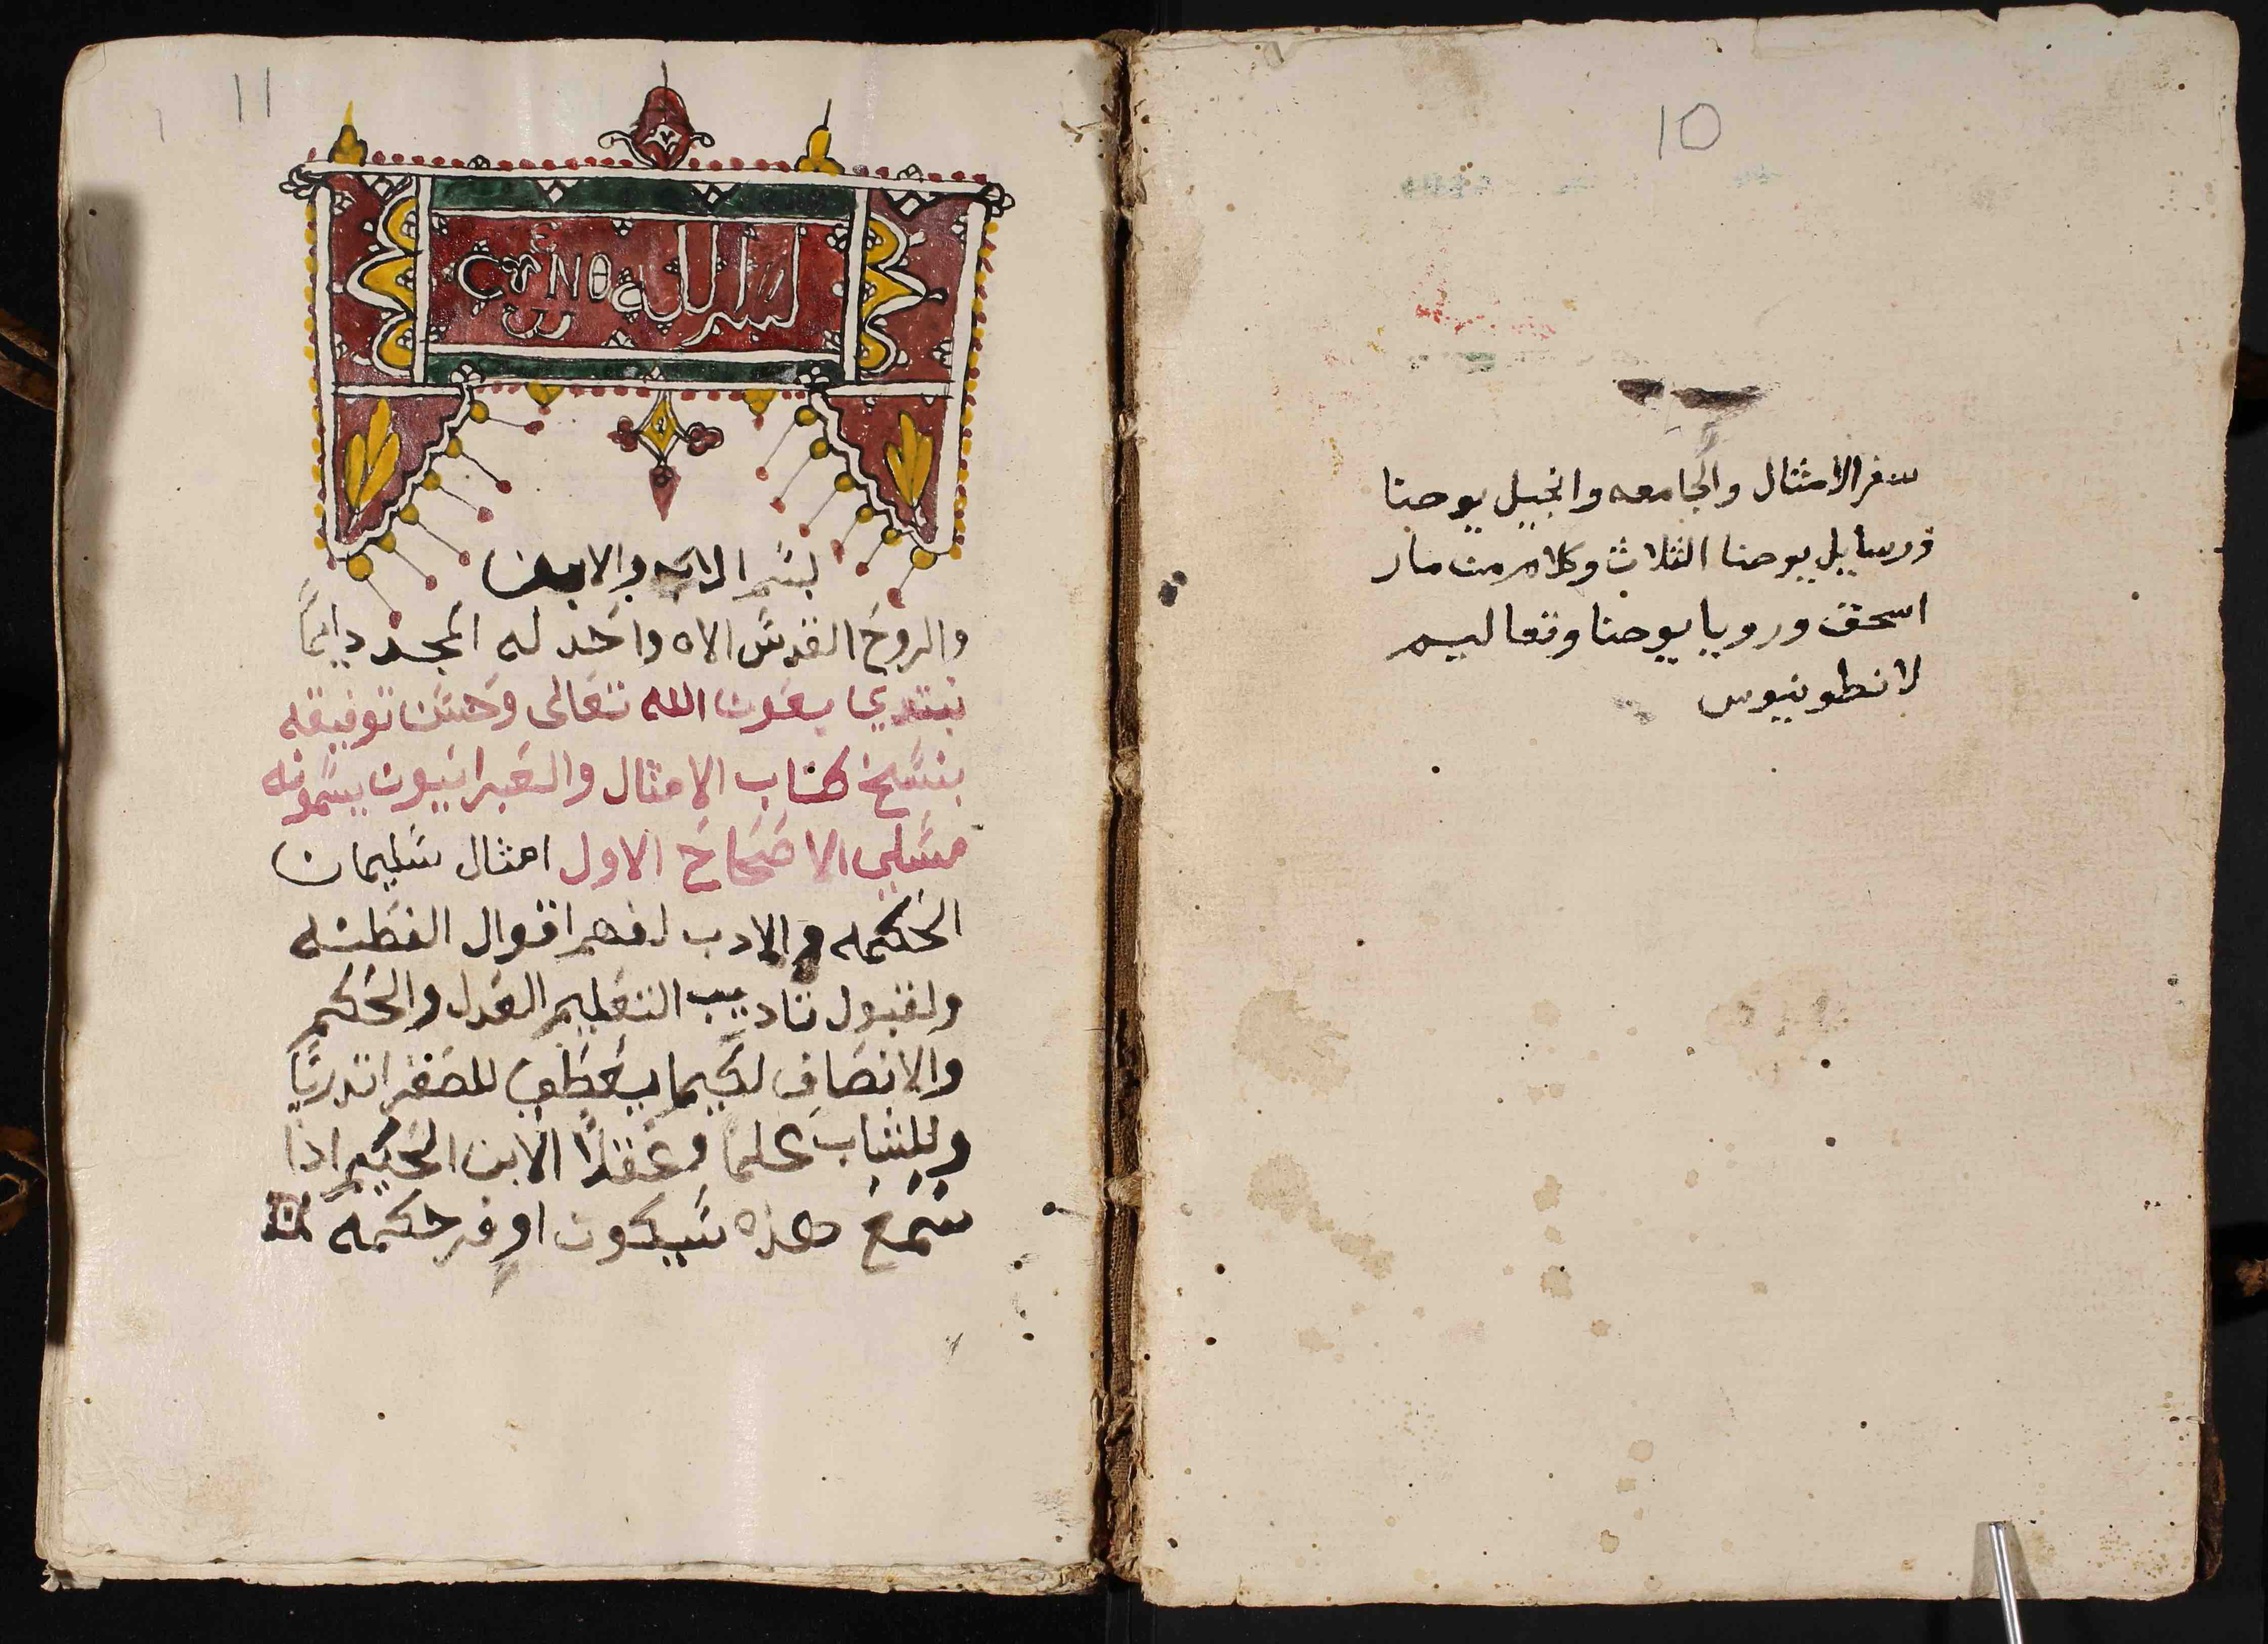 10
سفر الامثال والجامعه وانجيل يوحنا
ورسايل يوحنا الثلاث وكلام من مار
اسحق ورويا يوحنا وتعاليم
لانطونيوس
11
CYNΘ
بسم الاب والابن
والروح القدس الاه واحد له المجد دايمًا
نبتدي بعون الله تعالى وحسن توفيقه
بنسخ كتاب الامثال والعبرانيون يسمونه
مسلي الاصحاح الاول امثال سليمان
الحكمه والادب لفهم اقوال الفطنه
ولقبول تاديب التعليم العدل والحكم
والانصاف لكيما يعطى للصغير اتدربًا
وللشاب علمًا وعقلًا الابن الحكيم اذا
سمع هذه سيكون اوفر حكمه